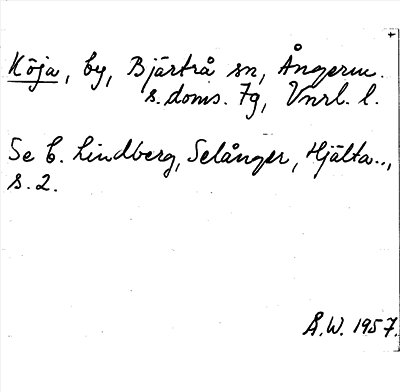 Köja, by, Bjärtrå sn, Ångerm.
s. doms. 7g, Vnrl. l.
Se C. Lindberg, Selånger, Hjälta..,
s. 2.
Å.W. 1957.